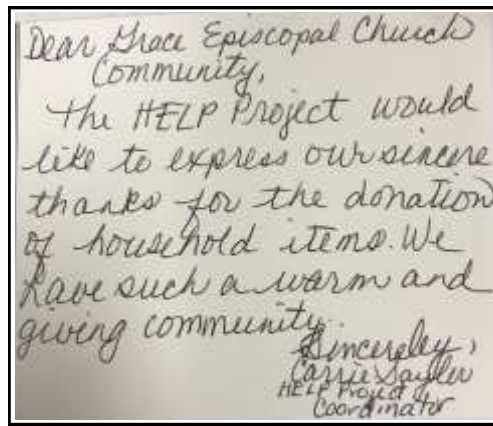 Dear Grace Episcopal Church
Community,
The HELP Project would
like to express our sincere
thanks for the donation
of household items. We
have such a warm and
giving community.
Sincereley,
Carrie Sayler
HELP Project
Coordinator